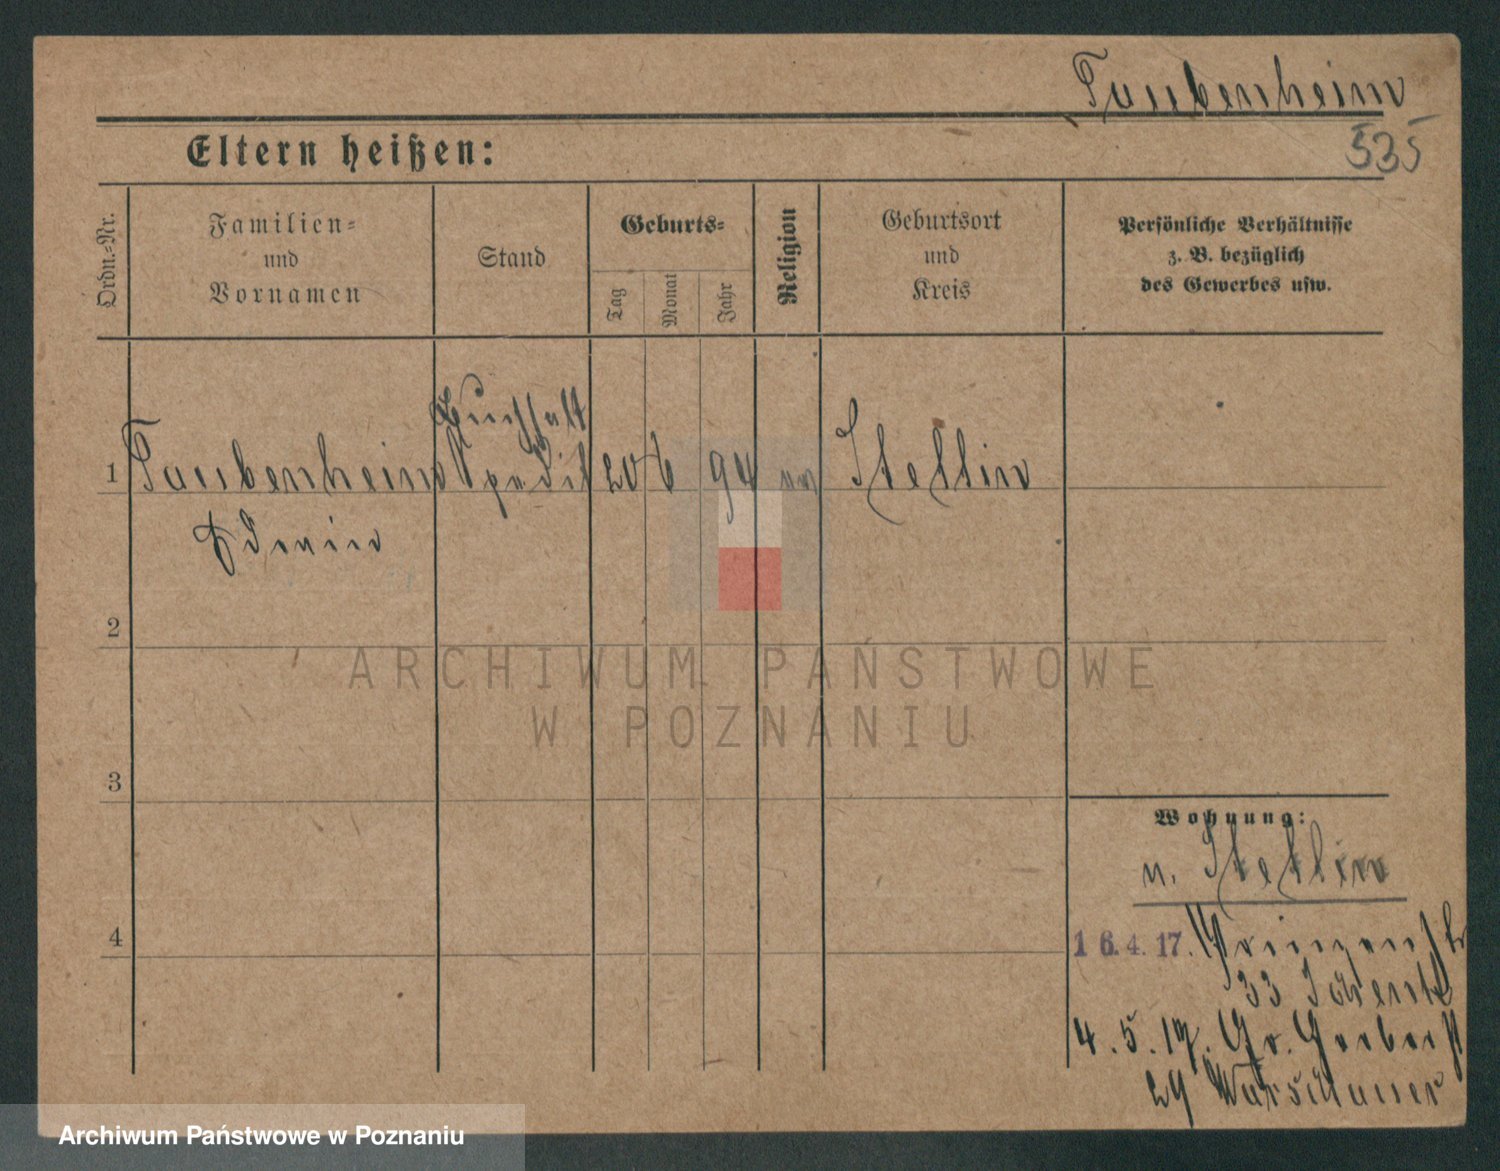 Taubenheim
535
Eltern heißen:
Ordn.-Nr.
Familien-
und
Vornamen
Stand
Geburts-
Tag
Monat
Jahr
Religion
Geburtsort
und
Kreis
Persönliche Verhältnisse
z. B. bezüglich
des Gewerbes usw.
Buchhalt
1 Taubenheim Spedit 20 6 94 Stettin
Edwin
2
ARCHIWUM PAŃSTWOWE
W POZNANIU
3
Wohnung:
n. Stettin
4
16.4.17. Prinzenstr
33
4.5.17. Gr. Gerberst
29 Warschauer
Archiwum Państwowe w Poznaniu